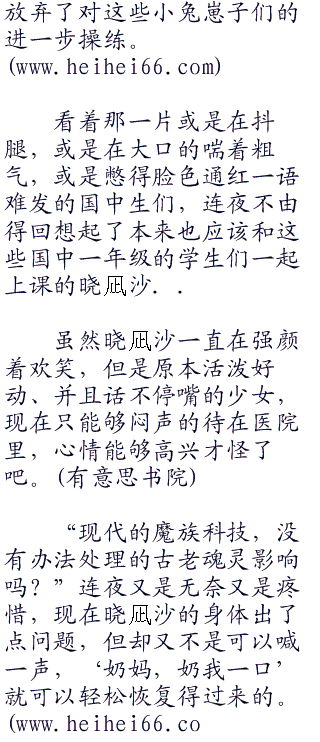 放弃了对这些小兔崽子们的
进一步操练。
(www.heihei66.com)
看着那一片或是在抖
腿，或是在大口的喘着粗
气，或是憋得脸色通红一语
难发的国中生们，连夜不由
得回想起了本来也应该和这
些国中一年级的学生们一起
上课的晓凪沙．．
虽然晓凪沙一直在强颜
着欢笑，但是原本活泼好
动、并且话不停嘴的少女，
现在只能够闷声的待在医院
里，心情能够高兴才怪了
吧。(有意思书院)
“现代的魔族科技，没
有办法处理的古老魂灵影响
吗？”连夜又是无奈又是疼
惜，现在晓凪沙的身体出了
点问题，但却又不是可以喊
一声，‘奶妈，奶我一口’
就可以轻松恢复得过来的。
(www.heihei66.co